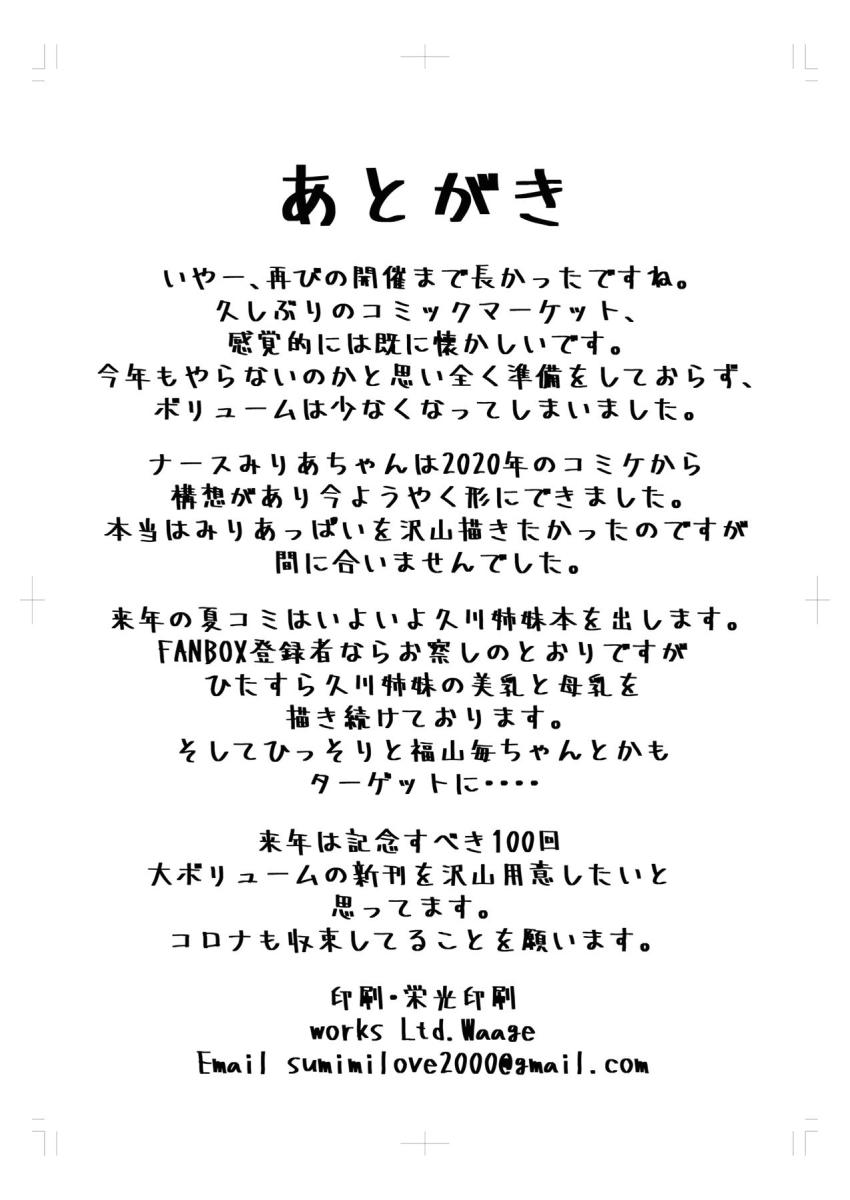 あとがき
いやー、再びの開催まで長かったですね。
久しぶりのコミックマーケット、
感覚的には既に懐かしいです。
今年もやらないのかと思い全く準備をしておらず、
ボリュームは少なくなってしまいました。
ナースみりあちゃんは2020年のコミケから
構想があり今ようやく形にできました。
本当はみりあっぱいを沢山描きたかったのですが
間に合いませんでした。
来年の夏コミはいよいよ久川姉妹本を出します。
FANBOX登録者ならお察しのとおりですが
ひたすら久川姉妹の美乳と母乳を
描き続けております。
そしてひっそりと福山毎ちゃんとかも
ターゲットに・・・・
来年は記念すべき100回
大ボリュームの新刊を沢山用意したいと
思ってます。
コロナも収束してることを願います。
印刷・栄光印刷
works Ltd.Waage
Email sumimilove2000@gmail.com